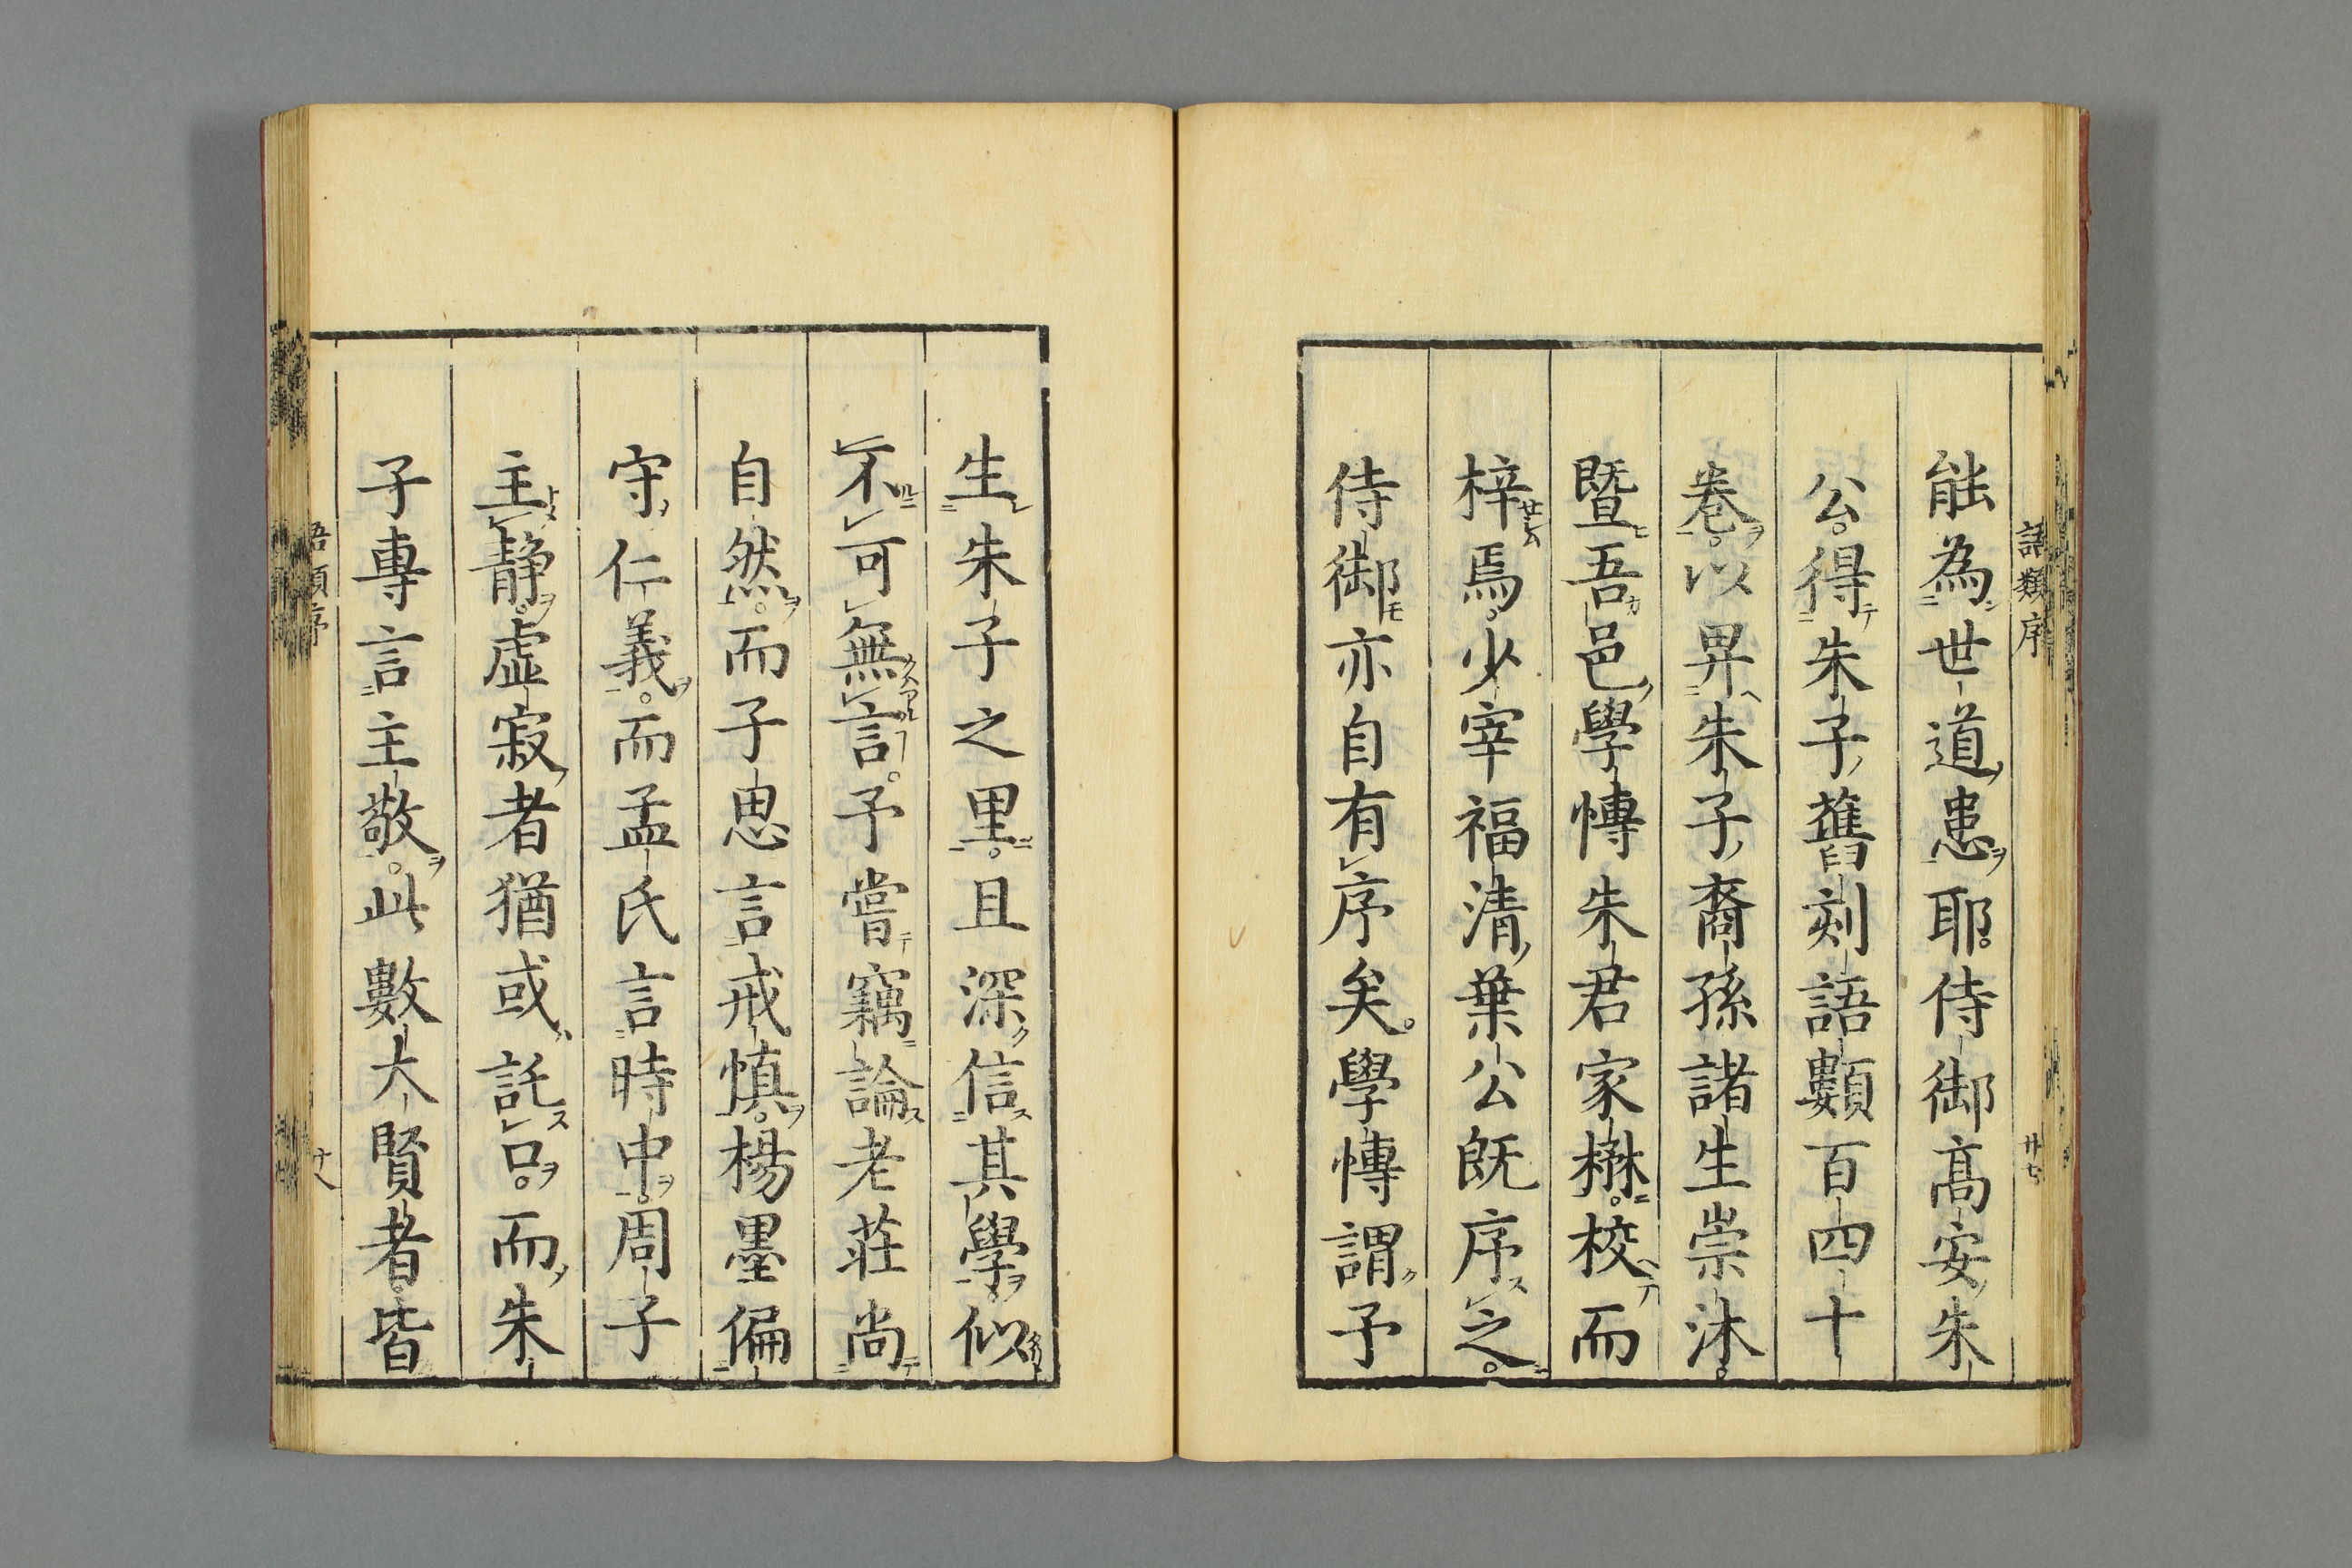 語類序
廿七
能為世道患耶侍御高安朱
公得朱子舊刻語類百四十
卷以畀朱子裔孫諸生崇沐
暨吾邑學博朱君家楙校而
梓焉少宰福清葉公既序之
侍御亦自有序矣學博謂予
生朱子之里且深信其學似
不可無言予嘗竊論老莊尚
自然而子思言戒慎楊墨偏
守仁義而孟氏言時中周子
主静虛寂者猶或託口而朱
子專言主敬此數大賢者皆
語類序
廿八